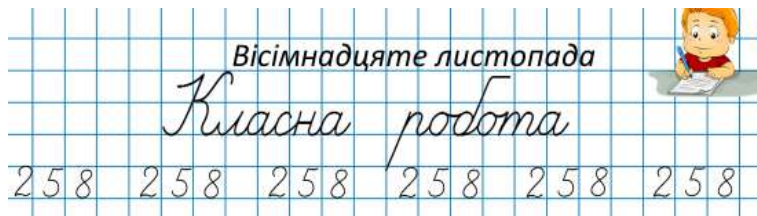 Вісімнадцяте листопада
Класна робота
2 5 8 2 5 8 2 5 8 2 5 8 2 5 8 2 5 8